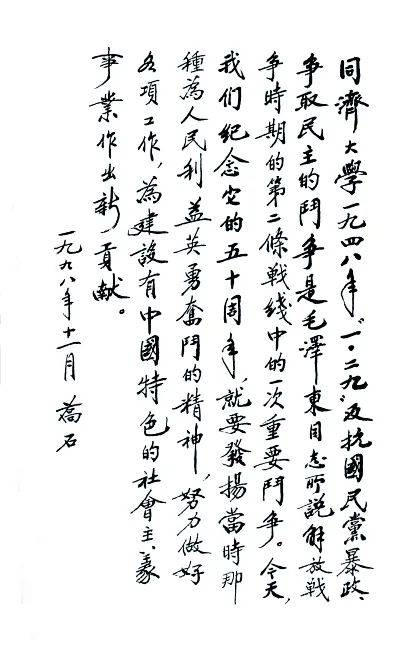 同濟大學一九四八年“一·二九”反抗國民黨暴政、
爭取民主的鬥爭是毛澤東同志所説解放戰
爭時期的第二條戰綫中的一次重要鬥爭。今天，
我们紀念它的五十周年，就要發揚當時那
種為人民利益英勇奮鬥的精神，努力做好
各項工作，為建設有中國特色的社會主義
事業作出新貢獻。
一九九八年十一月 喬石